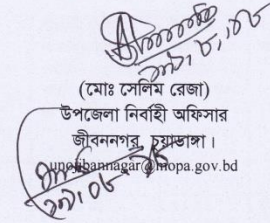 (মোঃ সেলিম রেজা)
উপজেলা নির্বাহী অফিসার
জীবননগর, চুয়াডাঙ্গা।
unojibannagar@mopa.gov.bd